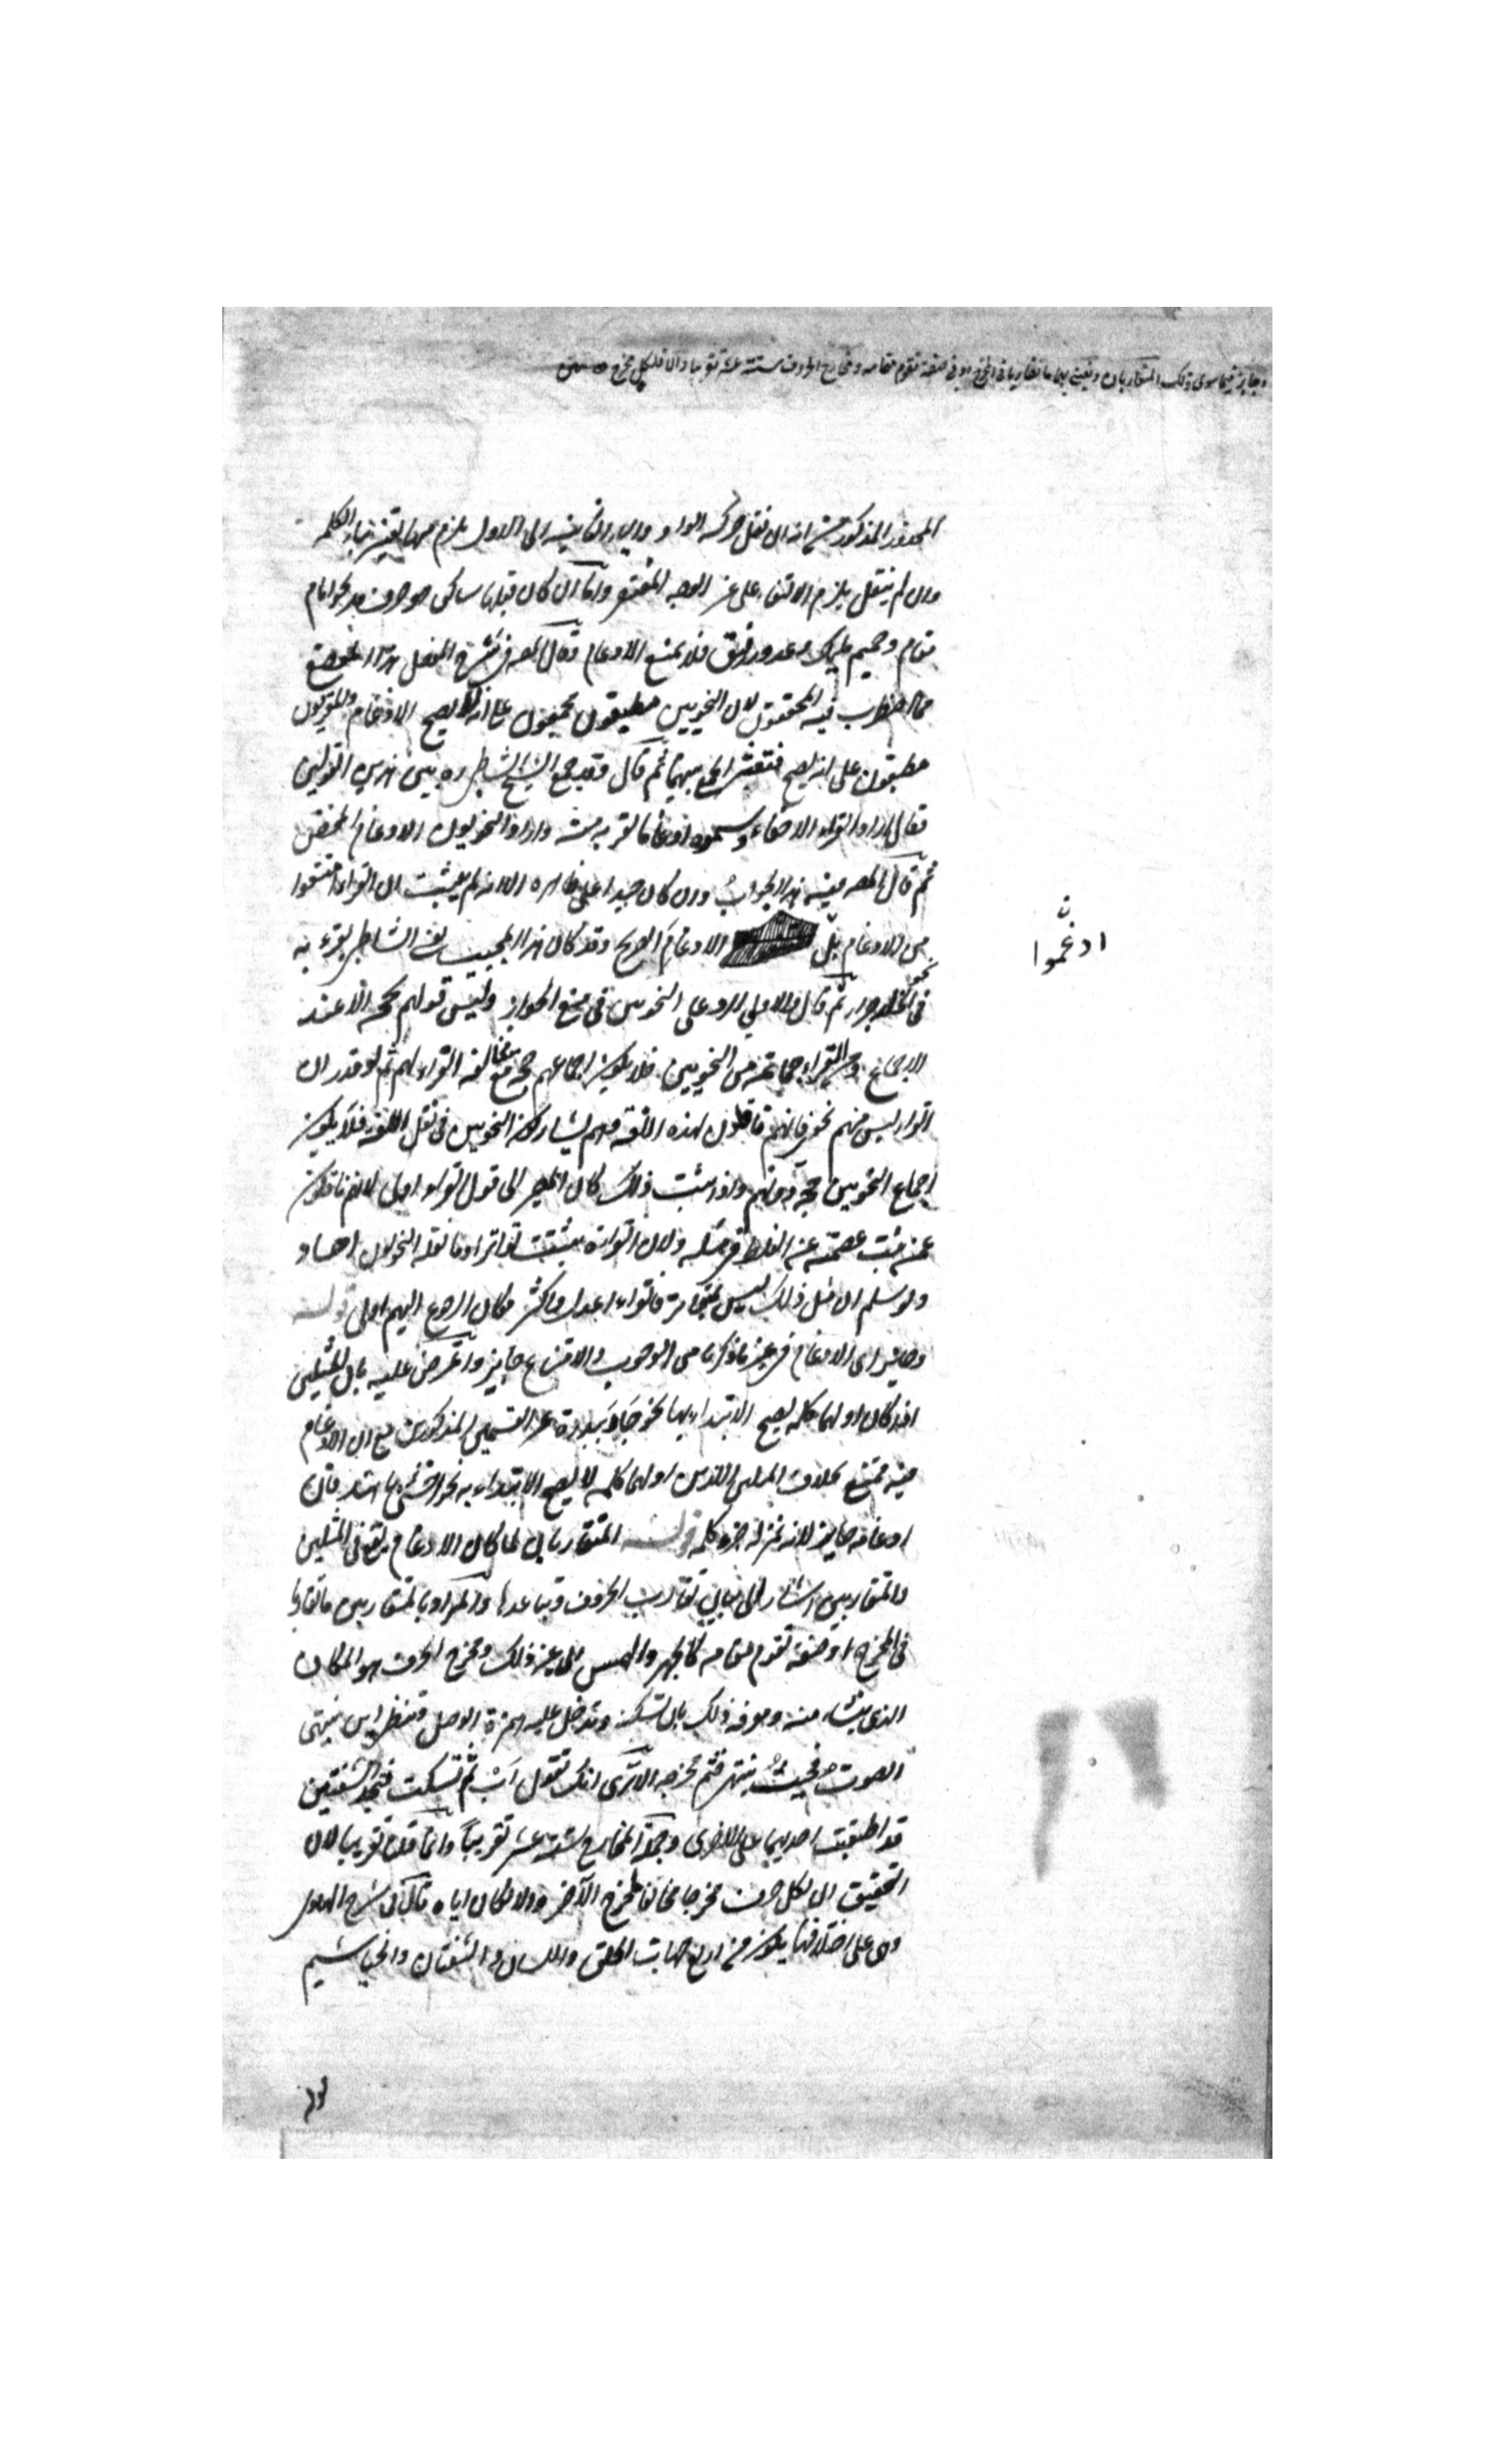 وجايز فيما سوى ذلك المتقاربان ونعنى بهما ما تقاربا فى المخرج او فى صفة تقوم مقامه ومخارج الحروف ستة عشر تقريبا والا فلكل مخرج
المحذور المذكور انه ان نقل حركة الواو والياء الثانية الى الاول يلزم تغير بناء الكلمة
وان لم ينقل يلزم الالتقاء على غير الوجه المغتفر واما ان كان قبلها ساكن هو حرف مد نحو امام
مقام وحميم فلا يمنع الادغام وقال المصـ فى شرح المفصل هذا الموضع
مما اضطرب فيه المحققون لان النحويين مطبقون مجمعون على انه لا يصح الادغام والمقريون
مطبقون على انه يصح فتعسر الجمع بينهما ثم قال وقد جمع الشيخ الشاطبى ره بين هذين القولين
فقال اراد القراء الاخفاء وسموه ادغاما لقربه منه واراد النحويون الادغام المحض
ثم قال المصـ فيه هذا الجواب وان كان جيدا على ظاهره الا انه لم يثبت ان القراء امتنعوا
من الادغام بل الادغام الصريح وقد كان هذا المجيب يعنى الشاطبى يقرء به
ادغموا ن
فى نحو الخلد جزاء ثم قال والاولى الرد على النحويين فى منع الجواز وليس قولهم بحجة الا عند
الاجماع ومن القراء جماعة من النحويين فلا يكون اجماعهم حجة مع مخالفة القراء لهم ثم لو قدر ان
القراء ليس منهم نحوى فانهم ناقلون لهذه اللغة وهم يشاركون النحويين فى نقل اللغة فلا يكون
اجماع النحويين حجة دونهم واذا ثبت ذلك كان المصير الى قول القراء اولى لانهم ناقلون
عمن ثبت عصمته عن الغلط فى مثله ولان القراءة يثبت تواترا وما نقله النحويون احاد
ولو سلم ان مثل ذلك ليس بمتواتر فالقراء اعدل واكثر فكان الرجوع اليهم اولى قوله
وجايز اى الادغام فى غير ما ذكرنا من الوجوب والامتناع جايز واعترض عليه بان المثلين
اذا كان اولهما كلمة يصح الابتداء بها نحو غير القسمين المذكورين مع ان الادغام
فيه ممتنع بخلاف المثلين اللذين اولهما كلمة لا يصح الابتداء به نحو فان
ادغامه جايز لانه بمنزلة جزء كلمة قوله المتقاربان لما كان الادغام يقع فى المثلين
والمتقاربين اشار الى بيان تقارب الحروف وتباعدها والمراد بالمتقاربين ما تقاربا
فى المخرج او صفة تقوم مقامه كالجهر والهمس الى غير ذلك ومخرج الحرف هو المكان
الذى ينشاء منه ومعرفة ذلك بان تسكنه وتدخل عليه همزة الوصل وتنظر اين ينتهى
الصوت فحيث ينتهى فثم مخرجه الا ترى انك تقول اب ثم تسكت فتجد الشفتين
قد اطبقت احديهما على الاخرى وجملة المخارج ستة عشر تقريبا وانما قلنا تقريبا لان
التحقيق ان لكل حرف مخرجا مخالفا لمخرج الآخر والا لكان اياه قال فى شرح الهادى
وهى على اختلافها يكون من اربع جهات الحلق واللسان والشفتان والخياشيم